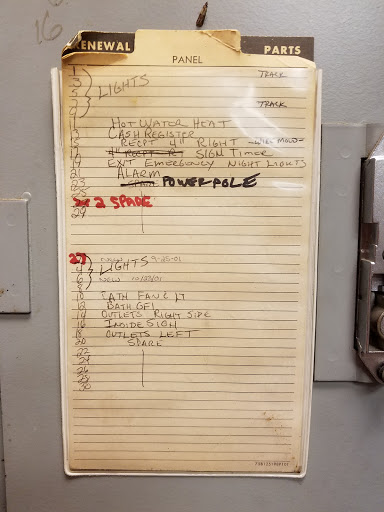 16
RENEWAL PARTS
PANEL
1 TRACK
3
5 LIGHTS
7 TRACK
9
11 HOT WATER HEAT
13 CASH REGISTER
15 RECPT 4" RIGHT -WIRE MOLD-
17 4" RECPT RT SIGN TIMER
19 EXIT EMERGENCY NIGHT LIGHTS
21 ALARM
23 SPARE POWER POLE
2 SPARE
29
2 NEW 9-25-01
4 LIGHTS
6 NEW
8
10 BATH FAN & LT
12 BATH GFI
14 OUTLETS RIGHT SIDE
16 INSIDE SIGN
18 OUTLETS LEFT
20 SPARE
22
24
26
28
30